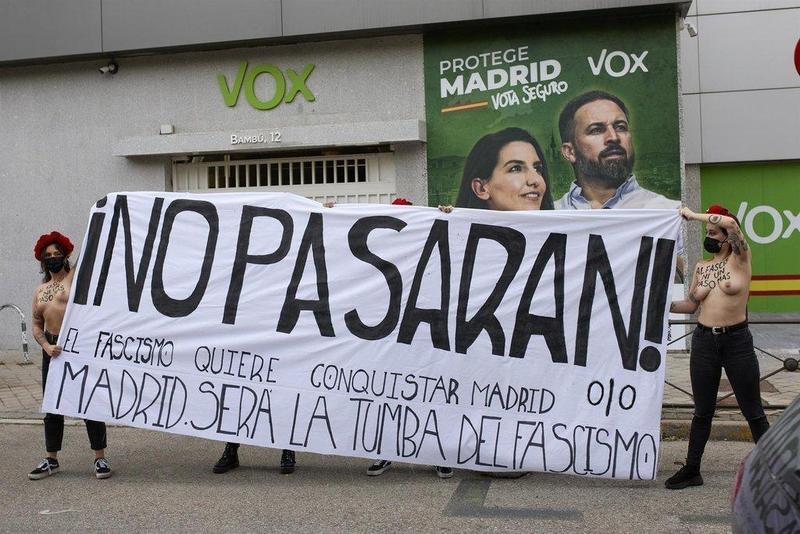 VOX
BAMBÚ, 12
PROTEGE
MADRID
VOTA SEGURO
VOX
VOX
¡NO PASARAN!
EL FASCISMO QUIERE CONQUISTAR MADRID
MADRID. SERÁ LA TUMBA DEL FASCISMO
AL FASCI
NI UN
PASO MAS